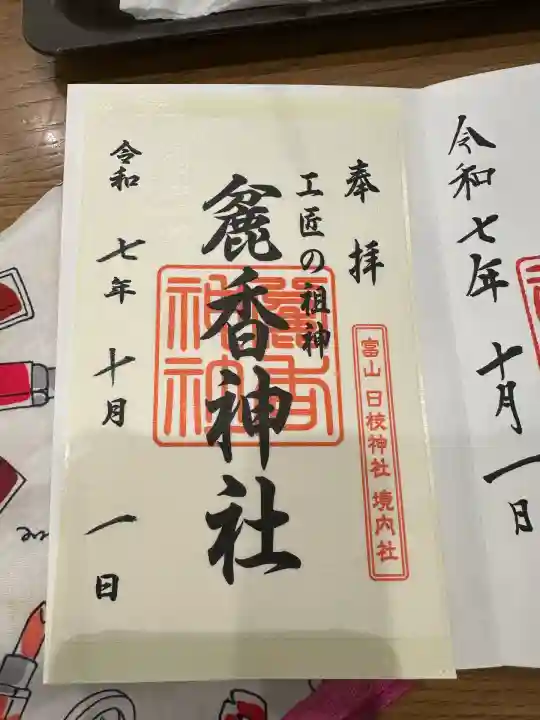 令和七年 十月一日
奉拝
富山 日枝神社 境内社
工匠の祖神
麁香神社
令和 七年 十月 一日